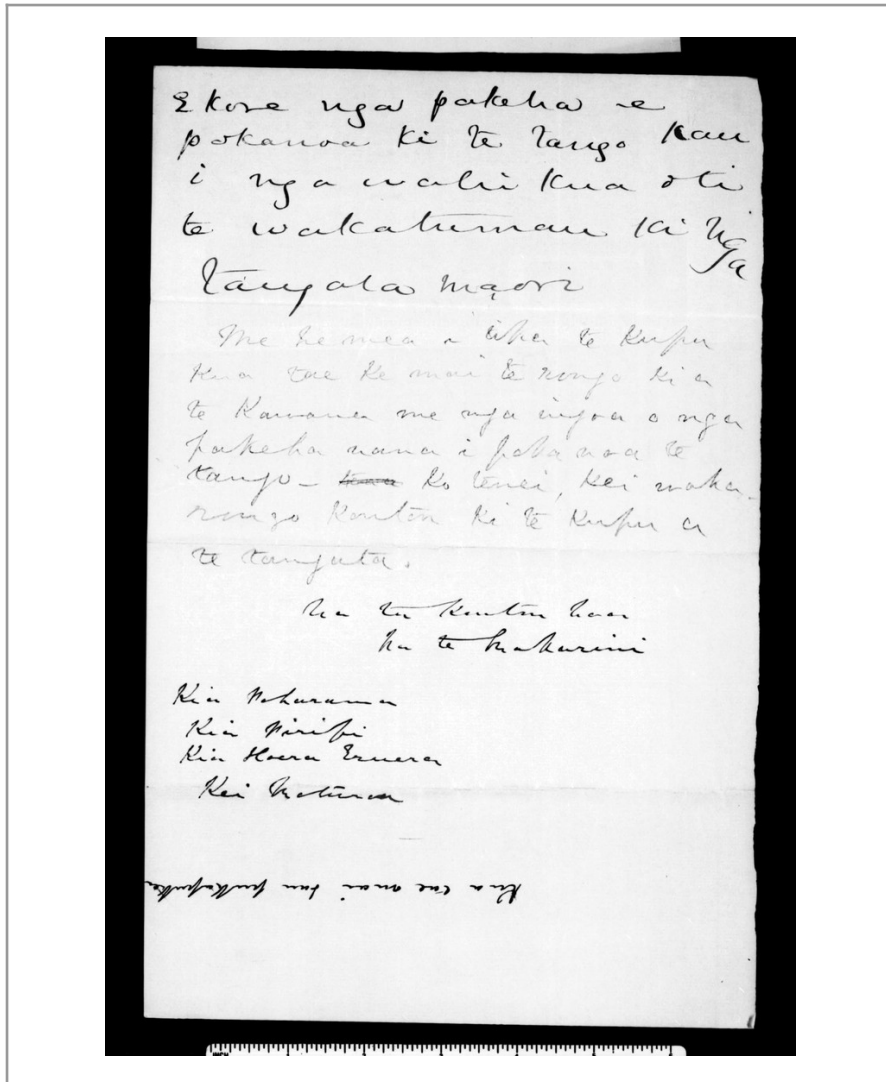 E kore nga pakeha e
pokanoa ki te tango kau
i nga wahi kua oti
te wakatumau ki Nga
tangata maori
Me he mea i the te kupu
kua tae ke mai te rongo ki a
te Kawana me nga ingoa o nga
pakeha nana i poka noa te
tango - kua Ko tenei, kei waka-
rongo koutou ki te kupu a
te tangata.
Na to koutou hoa
Na te Makarini
Kia Poharama
Kia Piripi
Kia Hoera Eruera
Kei
Kua tae mai tau pukapuka